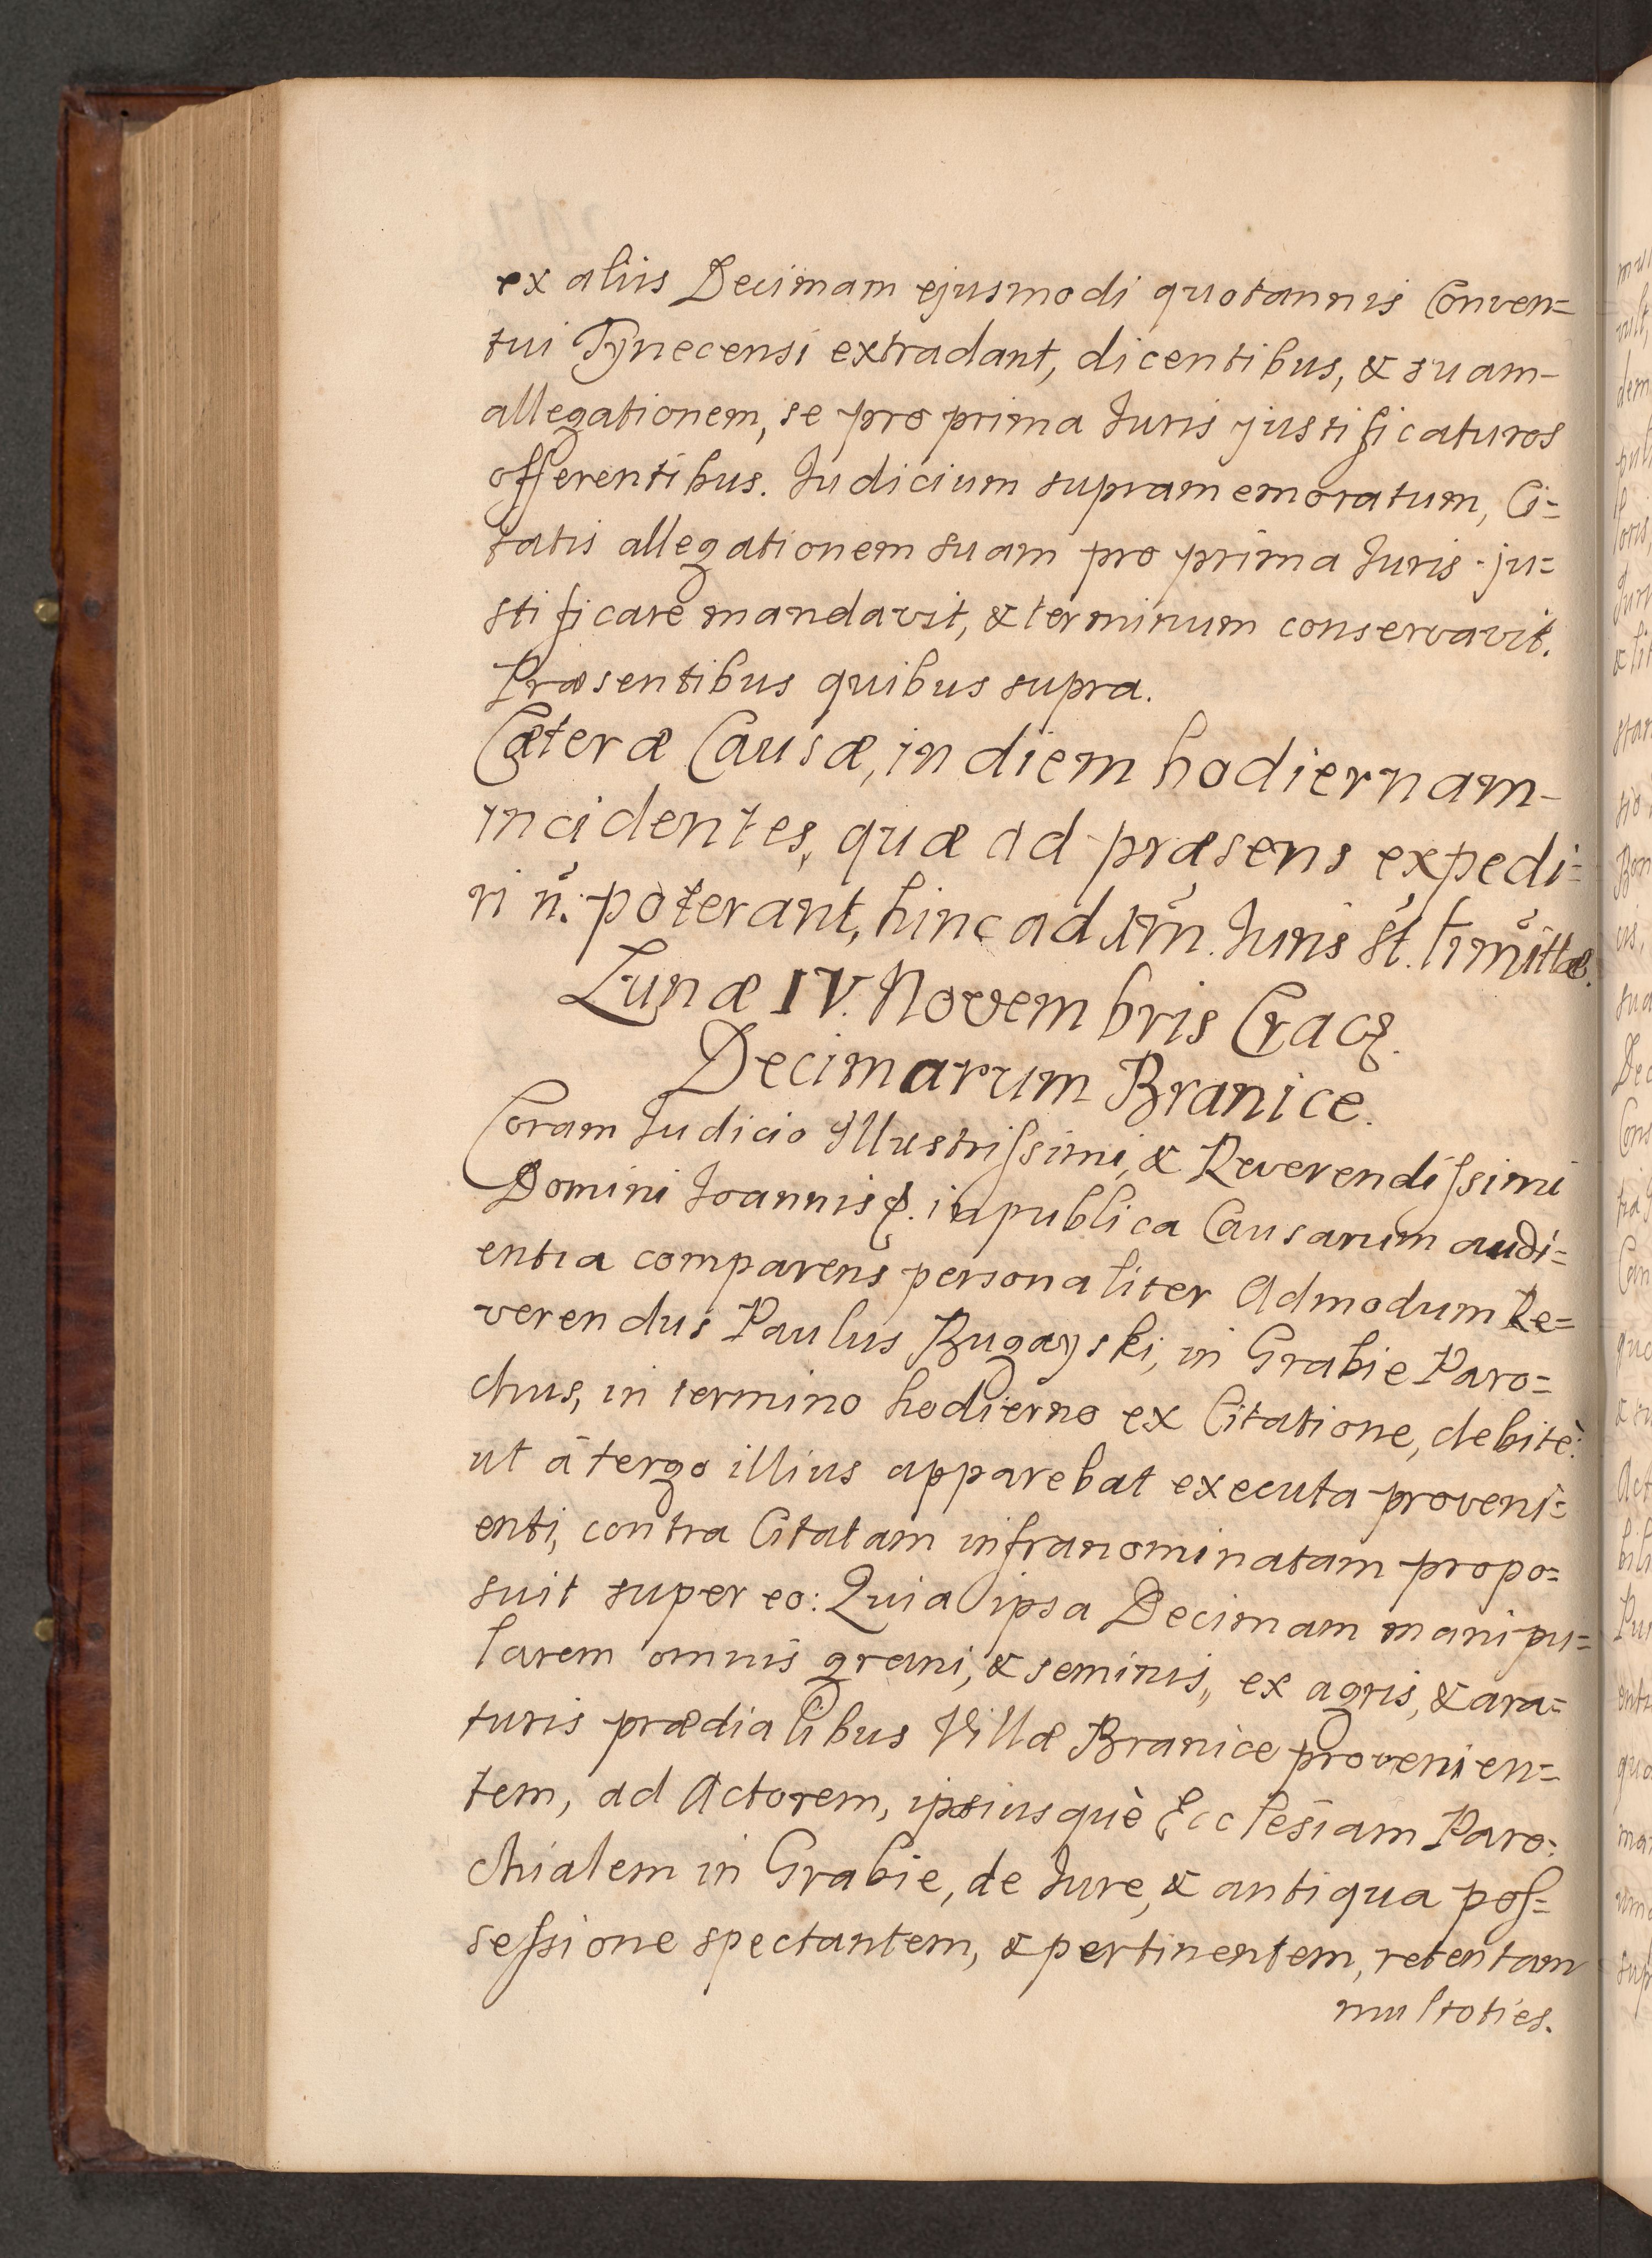 ex aliis Decimam ejusmodi quotannis Conven=
tui Tynecensi extradant, dicentibus, & suam-
allegationem, se pro prima Juris justificaturos
offerentibus. Judicium supramemoratum, Ci=
tatis allegationem suam pro prima Juris ju=
stificare mandavit, & terminum conservavit.
Præsentibus quibus supra.
Cæteræ Causæ, in diem hodiernam-
incidentes, quæ ad præsens expedi=
ri ñ. poterant, hinc ad Juris
Lunæ IV. Novembris Crac.
Decimarum Branice.
Coram Judicio Illustrissimi, & Reverendissimi
Domini Joannis &. in publica Causarum audi=
entia comparens personaliter Admodum Re=
verendus Paulus Bugayski, in Grabie Paro=
chus, in termino hodierno ex Citatione, debitè:
ut à tergo illius apparebat executa proveni=
enti, contra Citatam infranominatam propo=
suit super eo: Quia ipsa Decimam manipu=
larem omnis grani, & seminis, ex agris, & ara=
turis prædialibus Villæ Branice provenien=
tem, ad Actorem, ipsiusquè Ecclesiam Paro=
chialem in Grabie, de Jure, & antiqua pos=
sessione spectantem, & pertinentem, retentam
multoties.